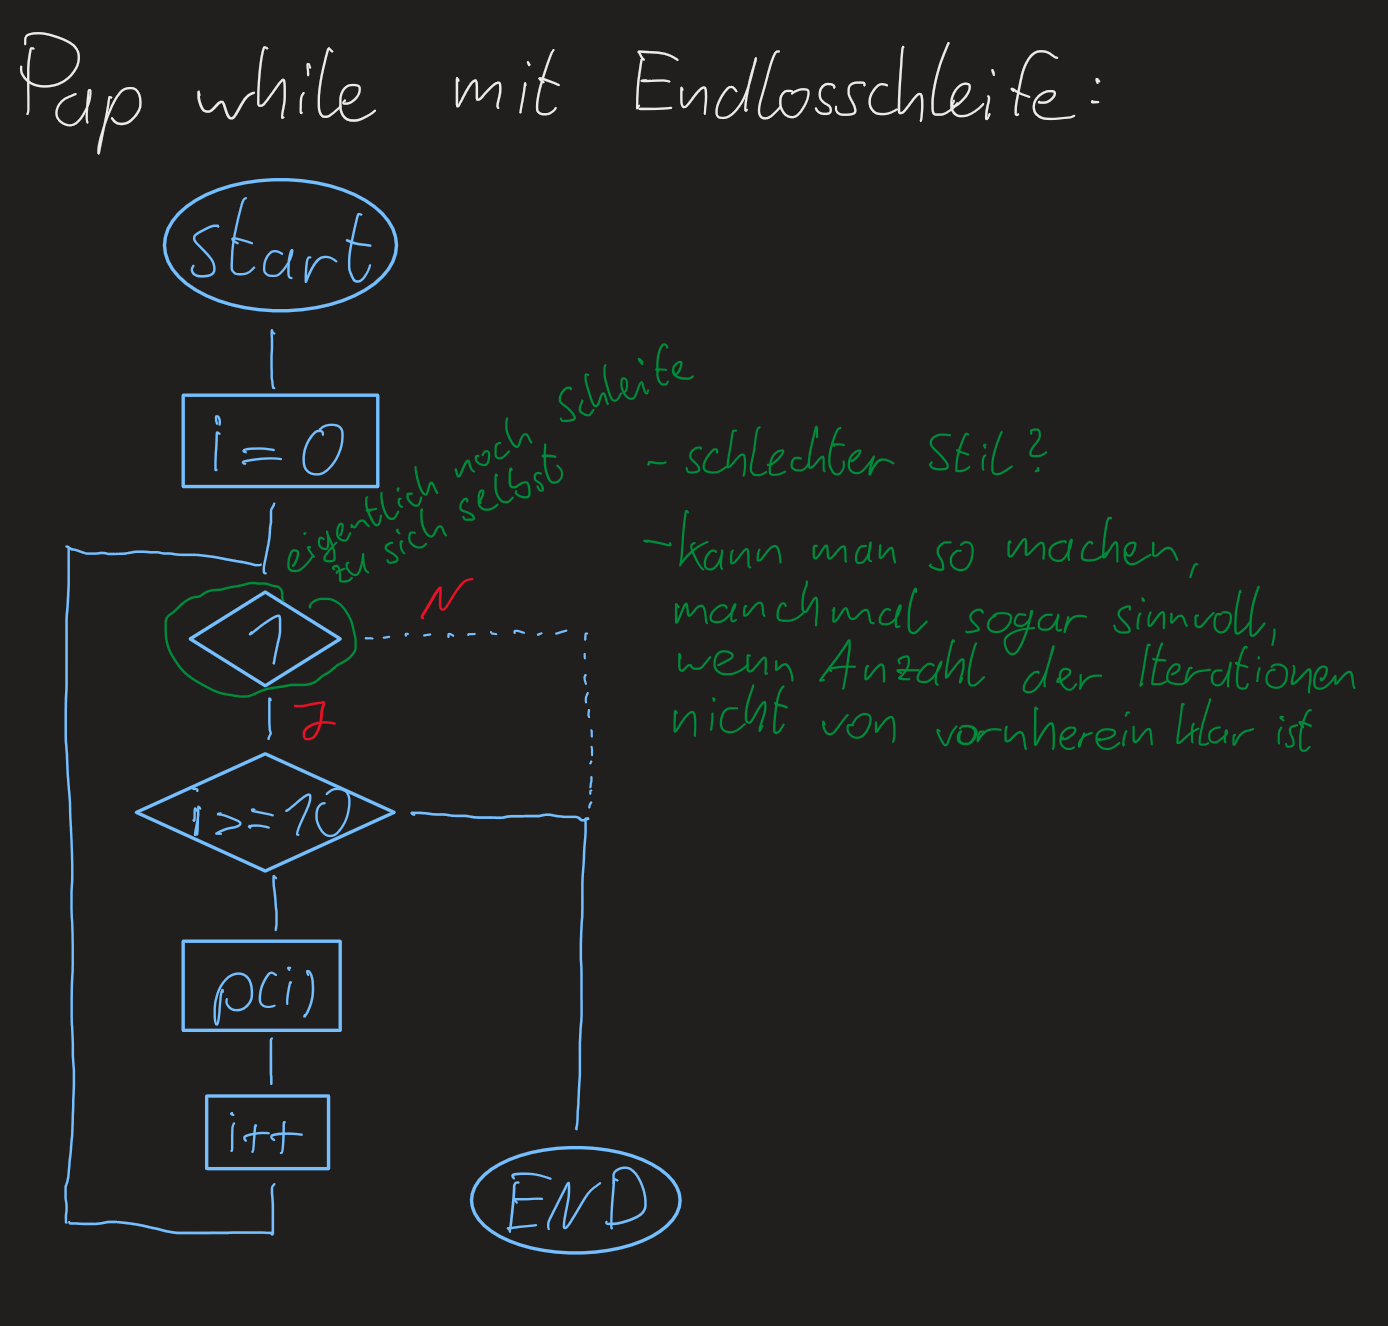 Pap while mit Endlosschleife:
start
i = 0
eigentlich noch Schleife
zu sich selbst
- schlechter Stil?
- kann man so machen,
manchmal sogar sinnvoll,
wenn Anzahl der Iterationen
nicht von vornherein klar ist
1
N
J
i >= 10
p(i)
i++
END